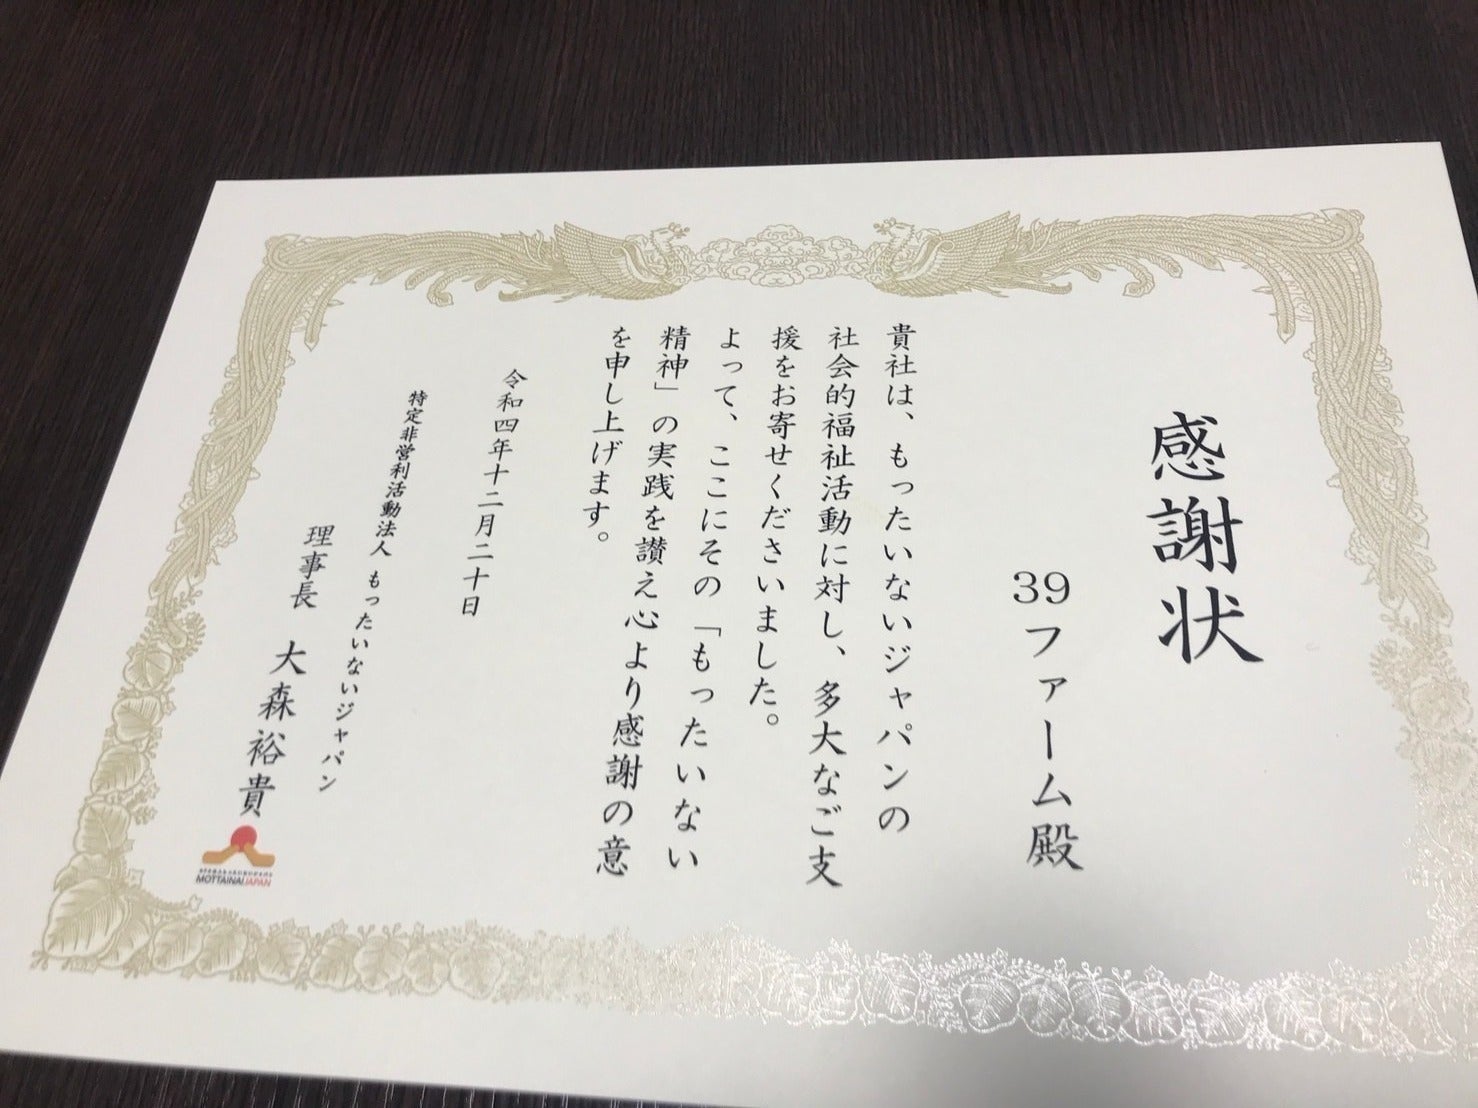 感謝状
39ファーム殿
貴社は、もったいないジャパンの
社会的福祉活動に対し、多大なご支
援をお寄せくださいました。
よって、ここにその「もったいない
精神」の実践を讃え心より感謝の意
を申し上げます。
令和四年十二月二十日
特定非営利活動法人 もったいないジャパン
理事長 大森裕貴
MOTTAINAIJAPAN